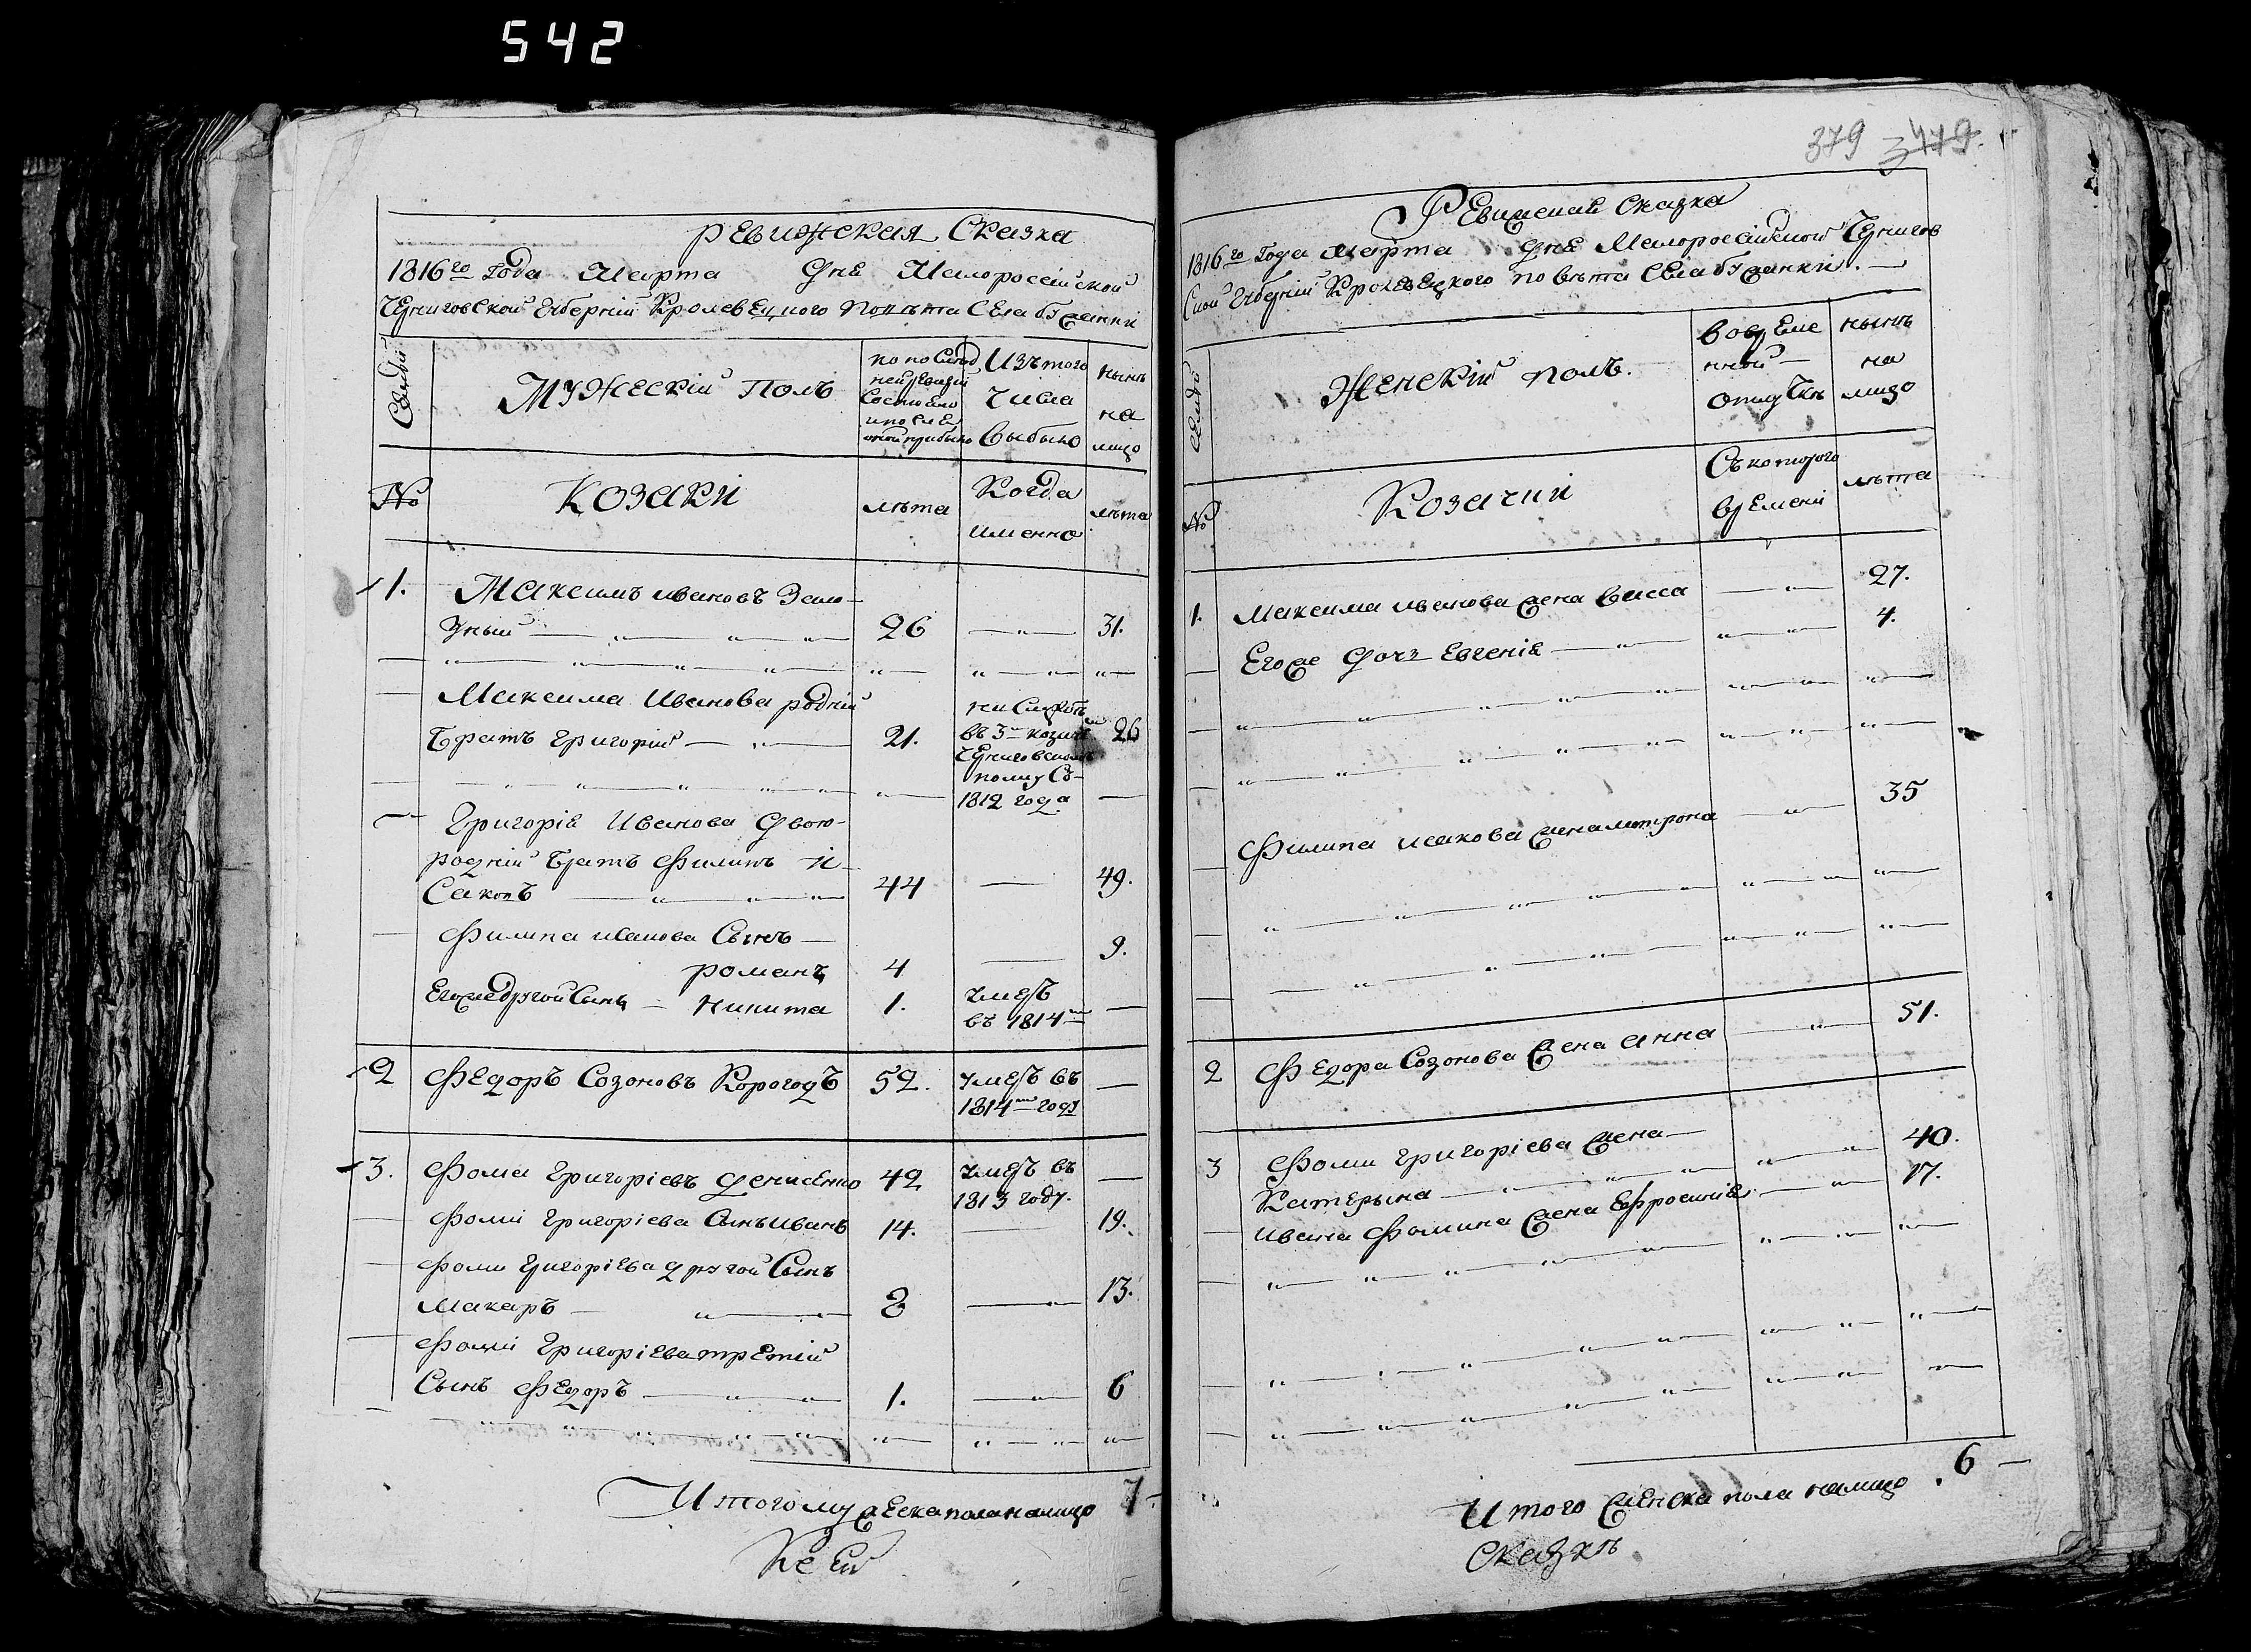 542
379 3479.
Ревижская Сказка
1816го Года Марта Дня Малороссійской
Черниговской Губерніи Кролевецкого Повѣта Села бужанки
Семьи
Мужескій Полъ
по последней ревизіи состояло и после оной прибыло
Изъ того числа выбыло
нынѣ на лицо
№
Козаки
лѣта
Когда именно
лѣта
1. Максимъ ивановъ Зало-
зный 26 31.
Максима Иванова родній
братъ григорій 21. на Службѣ въ 3м козачем Черниговском полку Съ 1812 года 26
Григорія Иванова двою-
родній братъ Филипъ и-
Саковъ 44 49.
Филипа исакова Сынъ
романъ 4 9.
Егожедругой Сынъ никита 1. умеръ въ 1814м
2 Федоръ Созоновъ Корогодъ 52. умеръ въ 1814м году
3. Фома григоріевъ денисенко 42 умеръ въ 1813 году.
Фоми григоріева Сынъ иванъ 14. 19.
Фоми григоріева другой Сынъ
Макаръ 8 13.
Фоми григоріева третій
Сынъ Федоръ 1. 6
Итого мужеска пола на лицо 7
Къ Ей
Ревижская Сказка
1816го Года Марта Дня Малороссійской Чернигов
Ской Губерніи Кролевецкого повѣта Села бужанки.
Семьи
Женскій полъ.
во временной отлучкѣ
нынѣ на лицо
№
Козачки
Съ которого времени
лѣта
1. Максима иванова жена васса 27.
Егоже дочъ Евгенія 4.
Филипа исакова жена мотрона 35
2 Федора Созонова жена анна 51.
3 Фоми григоріева жена
Катерына 40.
ивана Фомина жена Ефросинія 17.
Итого женска пола налицо 6
Сказкѣ